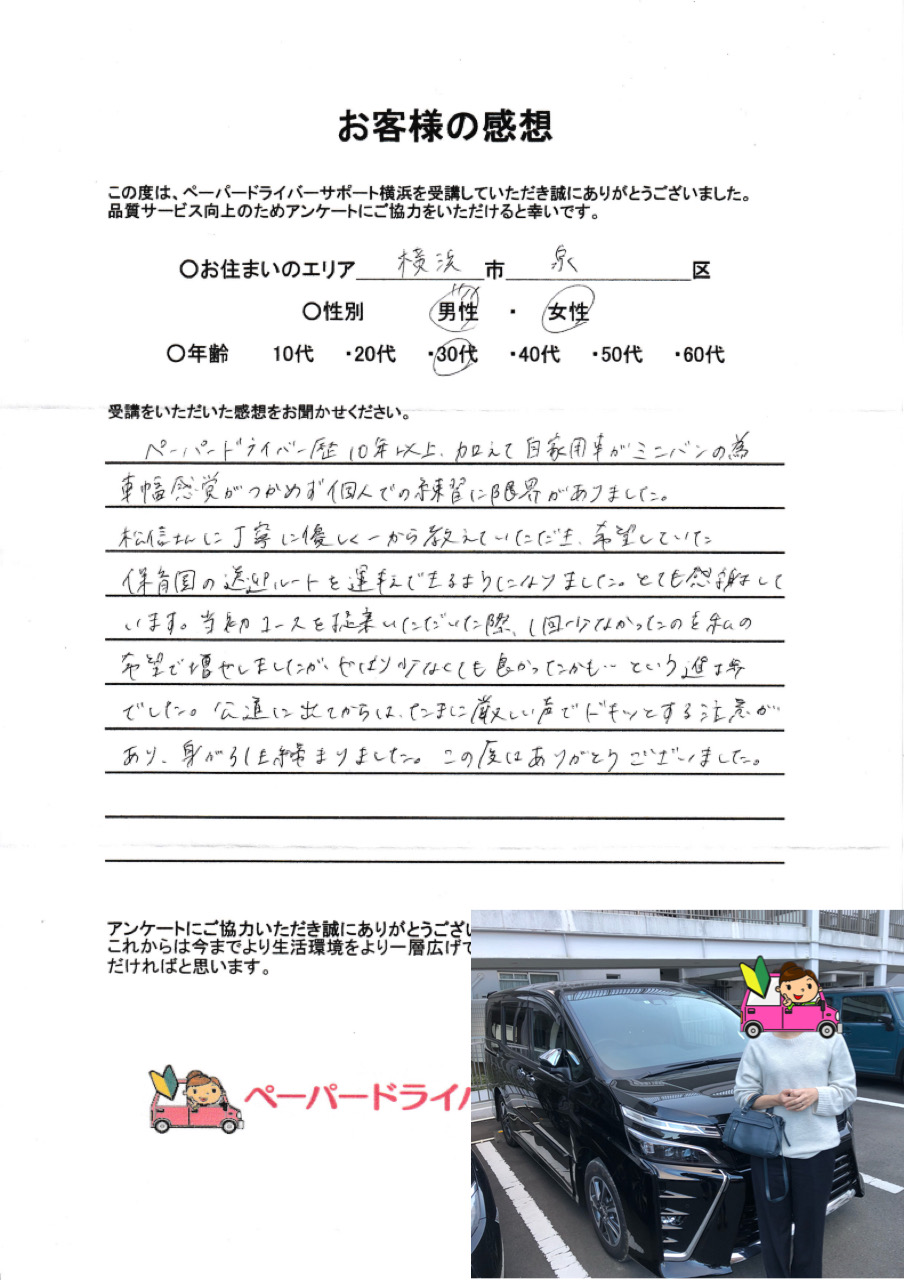 お客様の感想
この度は、ペーパードライバーサポート横浜を受講していただき誠にありがとうございました。
品質サービス向上のためアンケートにご協力をいただけると幸いです。
〇お住まいのエリア 横浜 市 泉 区
〇性別 男性 ・ 女性
〇年齢 10代 ・20代 ・30代 ・40代 ・50代 ・60代
受講をいただいた感想をお聞かせください。
ペーパードライバー歴10年以上、加えて自家用車がミニバンの為
車幅感覚がつかめず個人での練習に限界がありました。
松信さんに丁寧に優しく一から教えていただき、希望していた
保育園の送迎ルートを運転できるようになりました。とても感謝して
います。当初コースを提案いただいた際、1回少なかったのを私の
希望で増やしましたが、やはり少なくても良かったかも… という進歩
でした。公道に出てからは、たまに厳しい声でドキッとする注意が
あり、身が引き締まりました。この度はありがとうございました。
アンケートにご協力いただき誠にありがとうござい
これからは今までより生活環境をより一層広げて
だければと思います。
ペーパードライバ